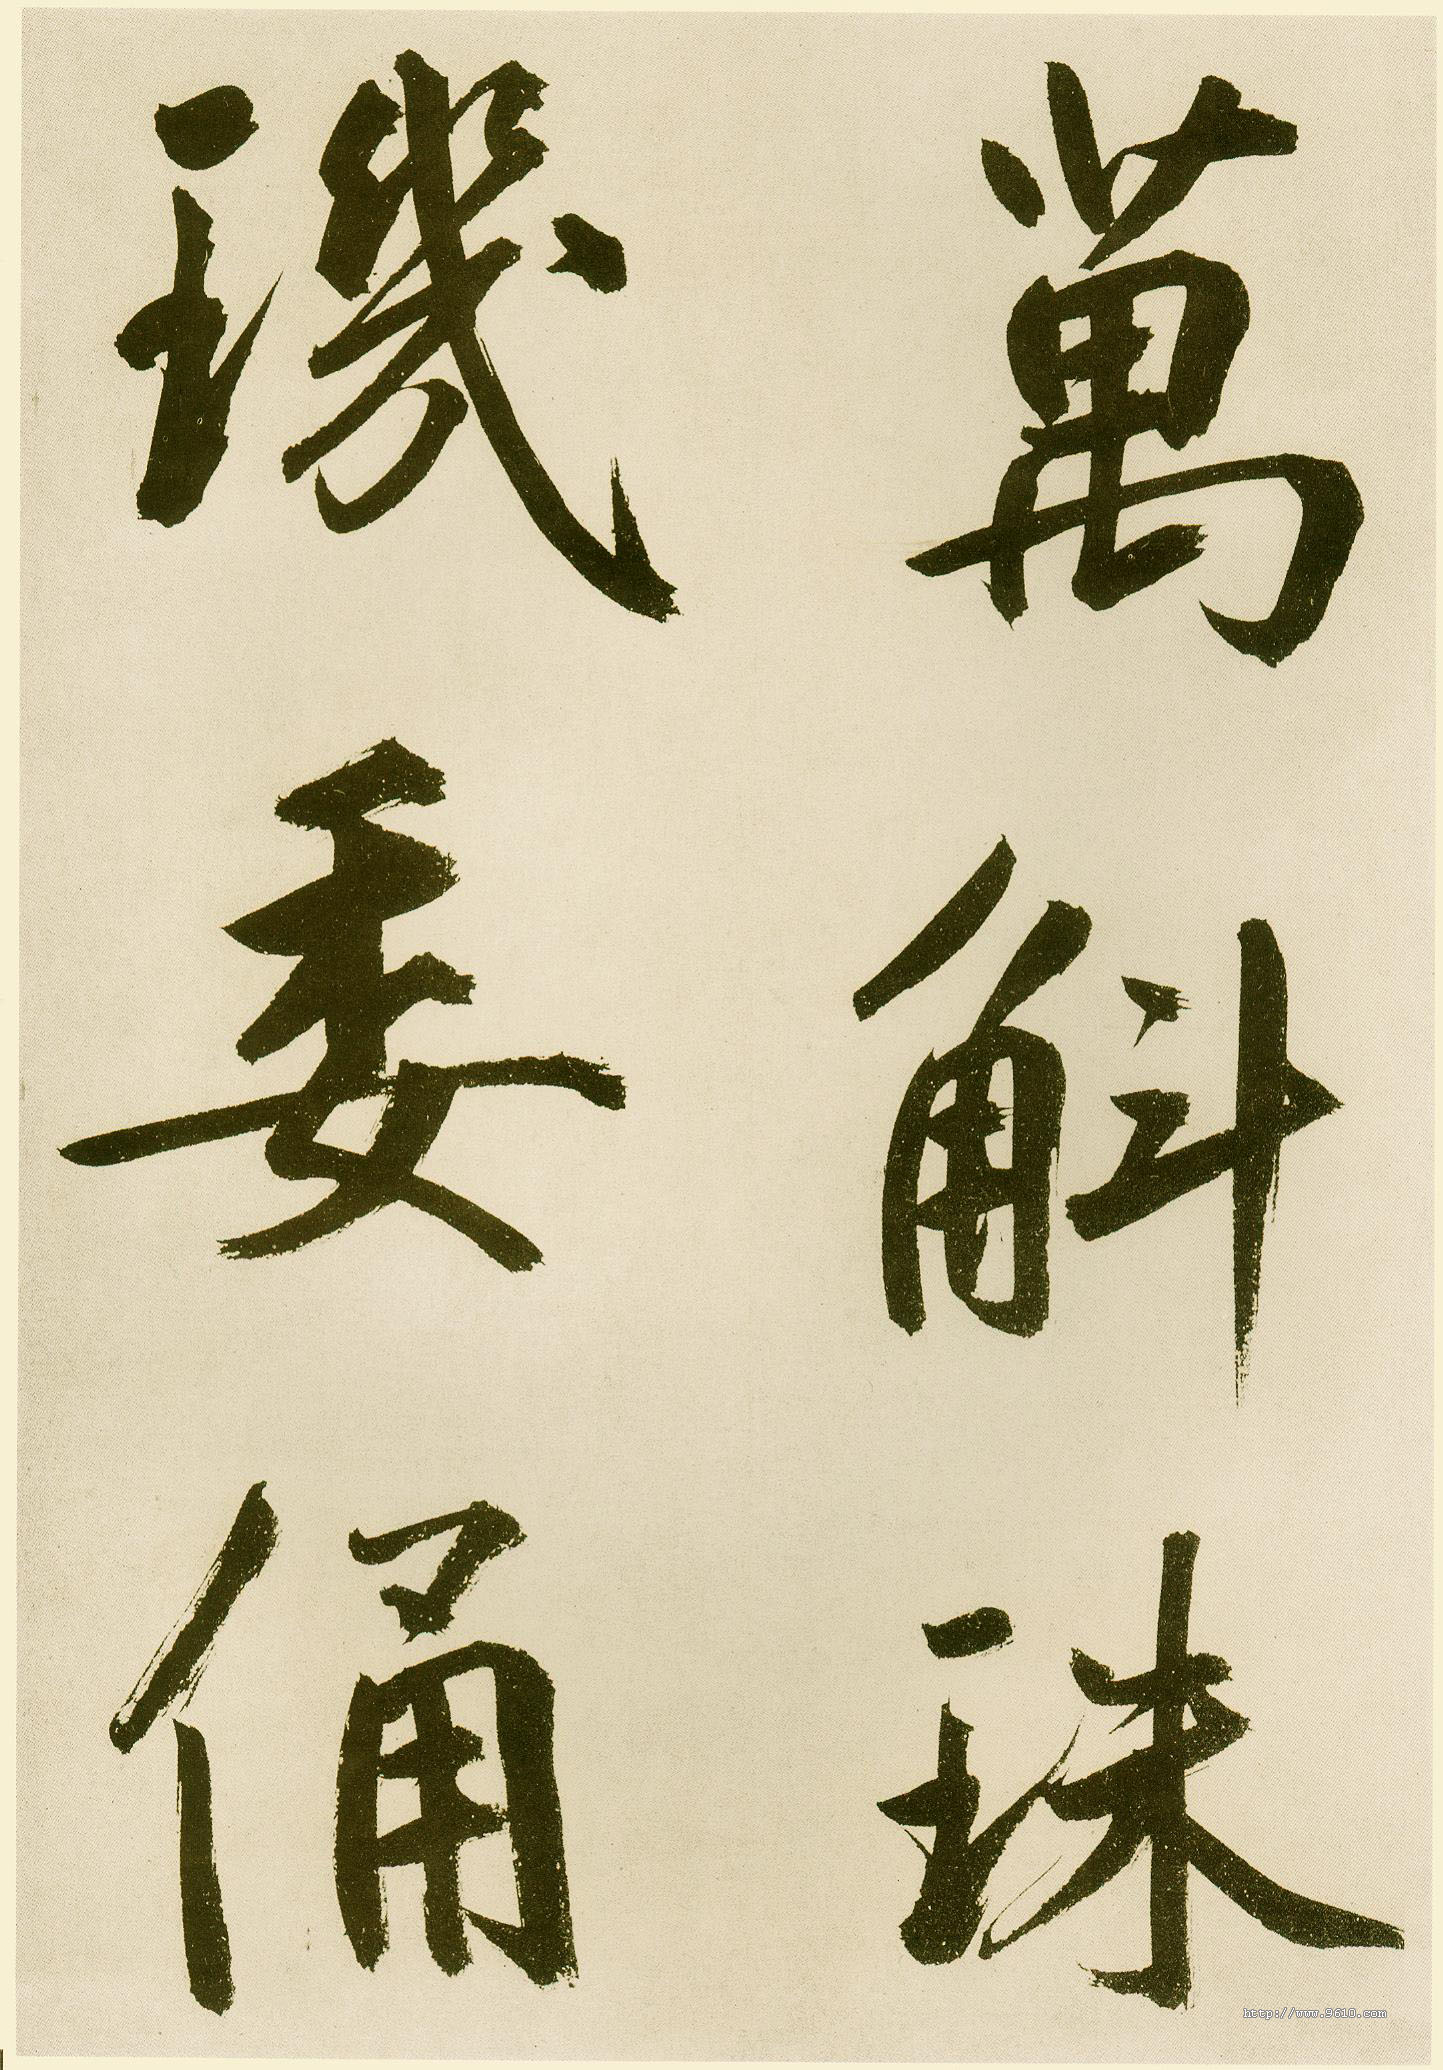 萬斛珠
璣委俑
http://www.9610.com